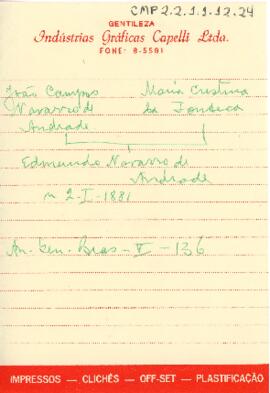 CMP 2.2.1.1.12.24
GENTILEZA
Indústrias Gráficas Capelli Ltda.
FONE: 8-5591
João Campos Maria Cristina
Navarro de da Fonseca
Andrade
Edmundo Navarro de
Andrade
n 2-I-1881
An. Gen. Bras. - V - 136
IMPRESSOS — CLICHÊS — OFF-SET — PLASTIFICAÇÃO